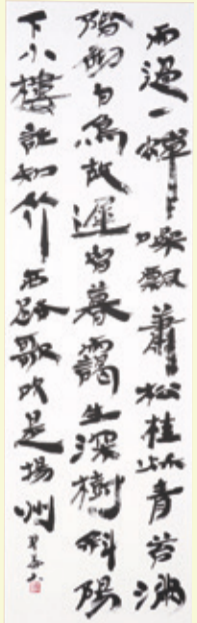 雨過一蟬噪飄蕭松桂秋青苔滿
階砌白鳥故遲留暮靄生深樹斜陽
下小樓誰知竹西路歌吹是揚州